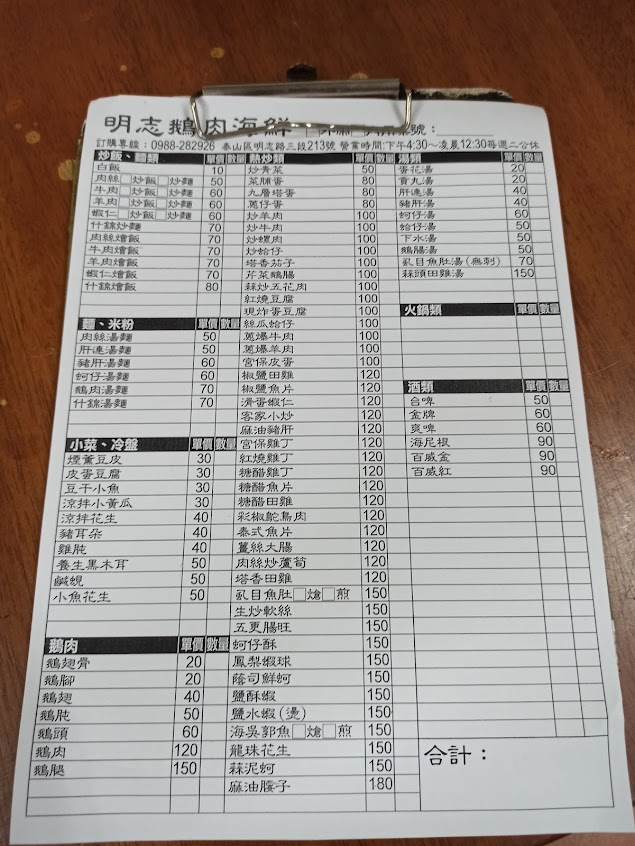 明志鵝肉海鮮 號：
訂購專線：0988-282926 泰山區明志路三段213號 營業時間:下午4:30～凌晨12:30每週二公休
炒飯、麵類 單價 數量
白飯 10
肉絲□炒飯□炒麵 50
牛肉□炒飯□炒麵 60
羊肉□炒飯□炒麵 60
蝦仁□炒飯□炒麵 60
什錦炒麵 70
肉絲燴飯 70
牛肉燴飯 70
羊肉燴飯 70
蝦仁燴飯 70
什錦燴飯 80
麵、米粉 單價 數量
肉絲湯麵 50
肝連湯麵 50
豬肝湯麵 60
蚵仔湯麵 60
鵝肉湯麵 70
什錦湯麵 70
小菜、冷盤 單價 數量
煙薰豆皮 30
皮蛋豆腐 30
豆干小魚 30
涼拌小黃瓜 30
涼拌花生 40
豬耳朵 40
雞肫 40
養生黑木耳 50
鹹蜆 50
小魚花生 50
鵝肉 單價 數量
鵝翅骨 20
鵝腳 20
鵝翅 40
鵝肫 50
鵝頭 60
鵝肉 120
鵝腿 150
熱炒類 單價 數量
炒青菜 50
菜脯蛋 80
九層塔蛋 80
蔥仔蛋 80
炒羊肉 100
炒牛肉 100
炒螺肉 100
炒蛤仔 100
塔香茄子 100
芹菜鵝腸 100
蒜炒五花肉 100
紅燒豆腐 100
現炸蛋豆腐 100
絲瓜蛤仔 100
蔥爆牛肉 100
蔥爆羊肉 100
宮保皮蛋 100
椒鹽田雞 120
椒鹽魚片 120
滑蛋蝦仁 120
客家小炒 120
麻油豬肝 120
宮保雞丁 120
紅燒雞丁 120
糖醋雞丁 120
糖醋魚片 120
糖醋田雞 120
彩椒鴕鳥肉 120
泰式魚片 120
薑絲大腸 120
肉絲炒蘆筍 120
塔香田雞 120
虱目魚肚□熗□煎 150
生炒軟絲 150
五更腸旺 150
蚵仔酥 150
鳳梨蝦球 150
蔭司鮮蚵 150
鹽酥蝦 150
鹽水蝦(燙) 150
海吳郭魚□熗□煎 150
龍珠花生 150
蒜泥蚵 150
麻油腰子 180
湯類 單價 數量
蛋花湯 20
貢丸湯 20
肝連湯 40
豬肝湯 40
蚵仔湯 60
蛤仔湯 50
下水湯 50
鵝腸湯 50
虱目魚肚湯(無刺) 70
蒜頭田雞湯 150
火鍋類 單價 數量
酒類 單價 數量
台啤 50
金牌 60
爽啤 60
海尼根 90
百威金 90
百威紅 90
合計：